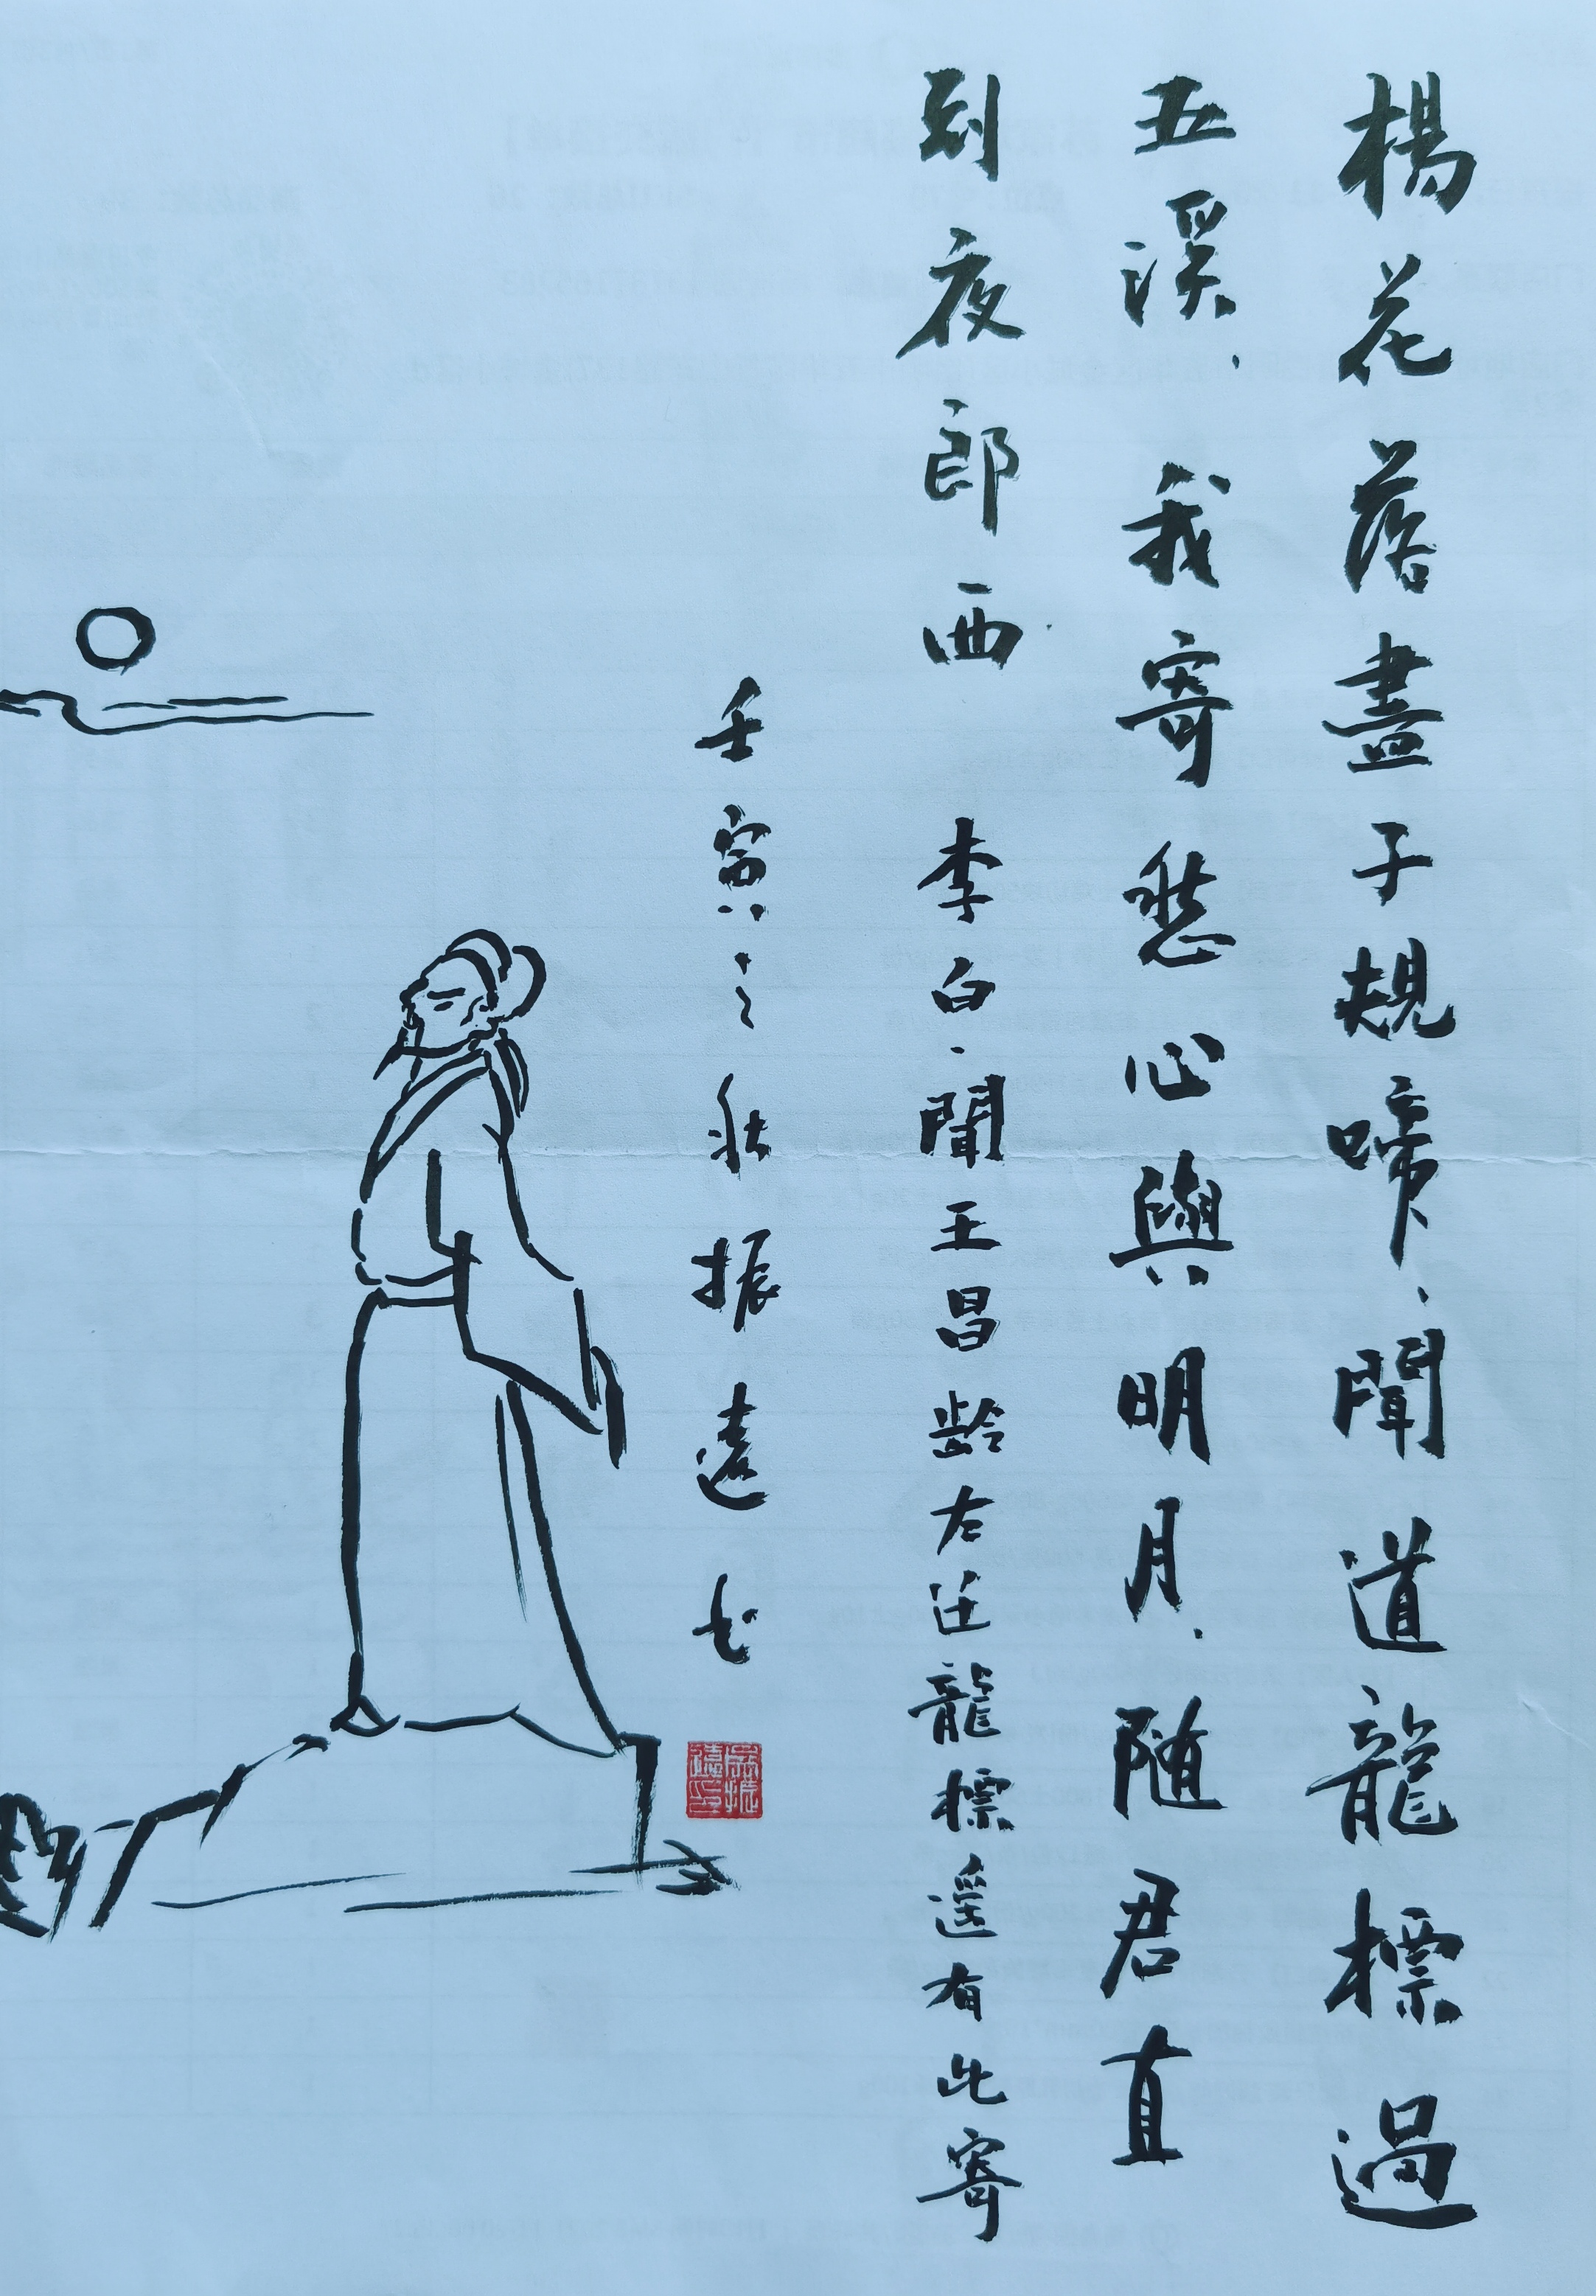 楊花落盡子規啼、聞道龍標過
五溪、我寄愁心與明月、随君直
到夜郎西 李白·聞王昌龄左迁龍標遥有此寄
壬寅之秋振遠书